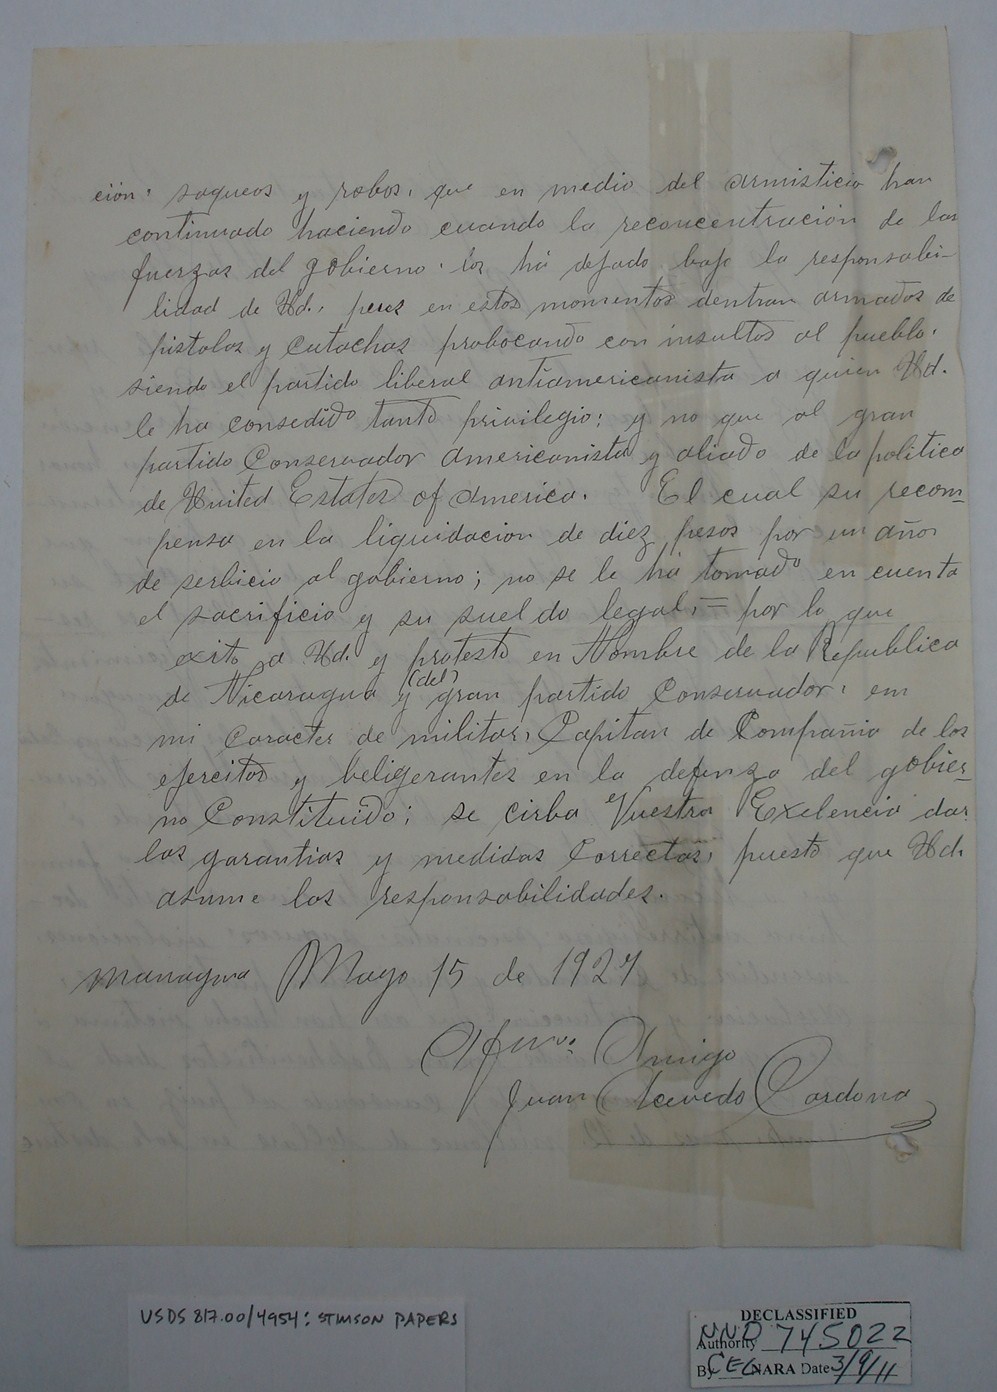 ción, saqueos y robos, que en medio del armisticio han
continuado haciendo cuando la reconcentración de las
fuerzas del gobierno. los há dejado bajo la responsabi-
lidad de Ud., pues en estos momentos dentran armados de
pistolas y cutachas probocando con insultos al pueblo.
siendo el partido liberal antiamericanista a quien Ud.
le ha consedido tanto privilegio; y no que al gran
partido Conservador americanista y aliado de la politica
de United Estates of America. El cual su recom-
pensa en la liquidacion de diez pesos por un años
de serbicio al gobierno; no se le há tomado en cuenta
el sacrificio y su sueldo legal, = por lo que
exito a Ud. y protesto en Nombre de la Republica
de Nicaragua y (del) gran partido Conservador, em
mi Caracter de militar, Capitan de Compañia de los
ejercitos y beligerantes en la defenza del gobier-
no Constituido; se cirba Vuestra Exelencia dar
las garantias y medidas Correctas, puesto que Ud.
asume las responsabilidades.
Managua Mayo 15 de 1927
Afmo. Amigo
Juan Acevedo Cardona
USDS 817.00/4954: STIMSON PAPERS
DECLASSIFIED
Authority NND 745022
By CEC NARA Date 3/9/11